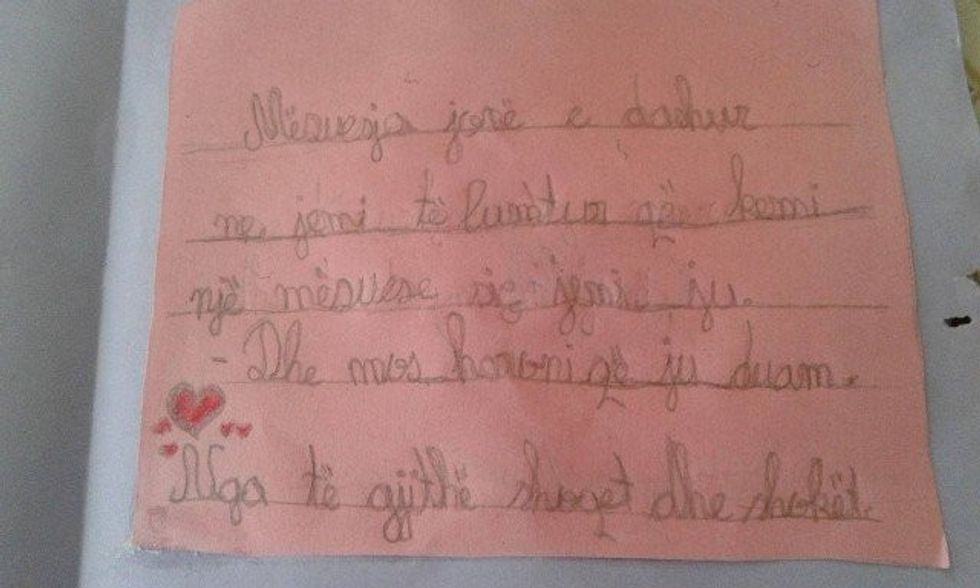 Mësuesja jonë e dashur
ne jemi të lumtur që kemi
një mësuese siç jeni ju.
- Dhe mos harroni që ju duam.
Nga të gjithë shoqet dhe shokët.